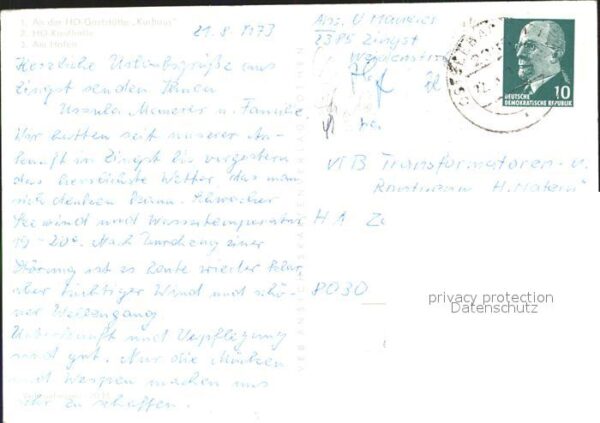 1. An der HO-Gaststätte „Kurhaus"
2. HO-Kaufhalle
3. Am Hafen
21.8.1973
Herzliche Urlaubsgrüße aus
Zingst senden Ihnen
Ursula Maurer u. Familie
Wir hatten seit unserer An-
kunft in Zingst bis vorgestern
das herrlichste Wetter, das man
sich denken kann. Schwacher
Seewind und Wassertemperatur
19-20°. Nach Durchzug einer
Störung ist es heute wieder klar,
aber tüchtiger Wind und schö-
ner Wellengang
Unterkunft und Verpflegung
sind gut. Nur die Mücken
und Wespen machen uns
sehr zu schaffen.
Abs. U
2385 Zingst
10
DEUTSCHE
DEMOKRATISCHE REPUBLIK
VEB Transformatoren- u.
Röntgenwerk "H. Matern"
HA
8030
privacy protection
Datenschutz